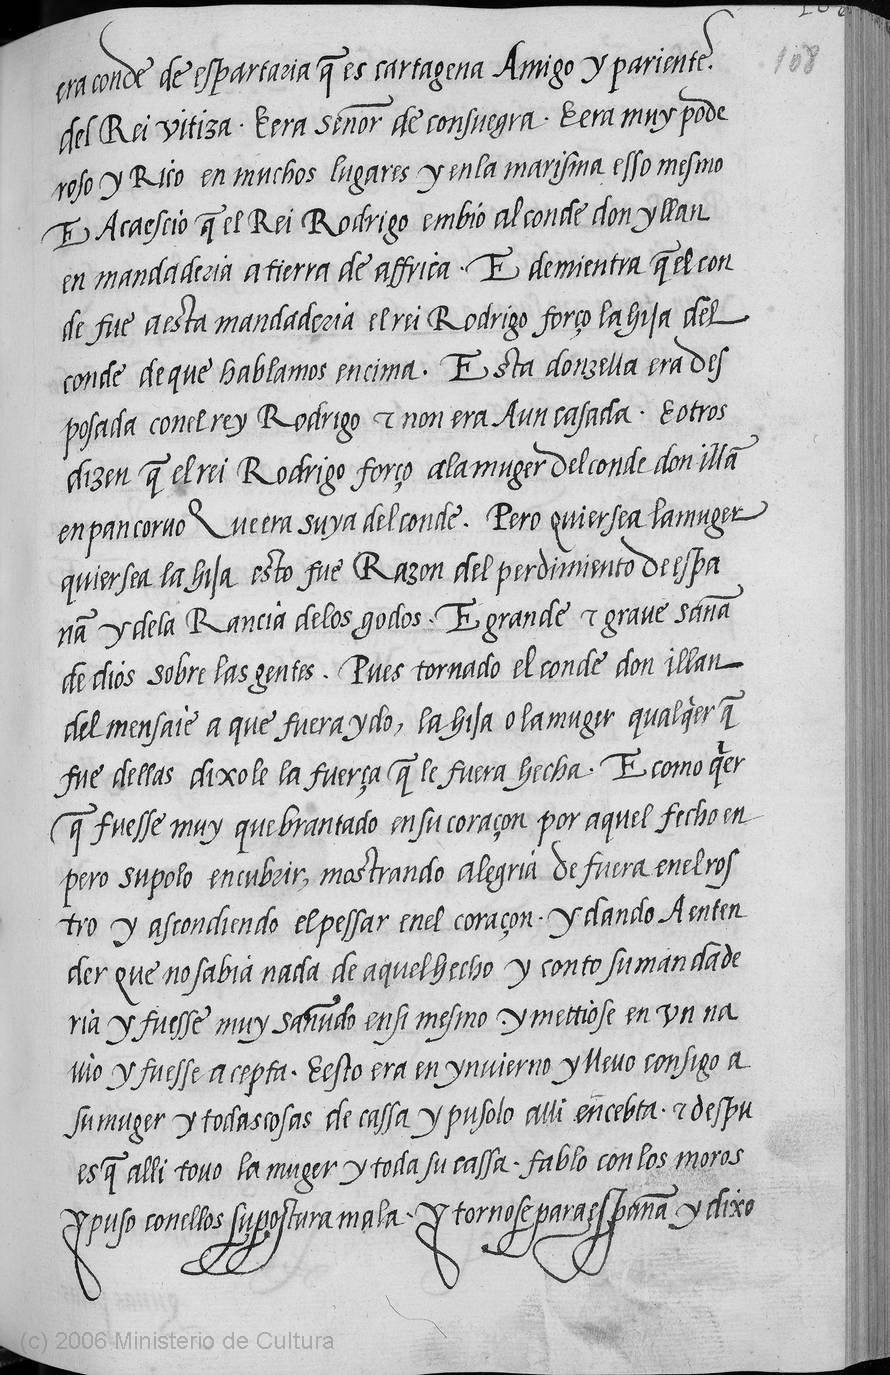 108
era conde de espartaria q̃ es cartagena Amigo y pariente.
del Rei vitiza. E era señor de consuegra. E era muy pode
roso y Rico en muchos lugares y en la marisma esso mesmo
E Acaescio q̃ el Rei Rodrigo embió al conde don yllan
en mandaderia a tierra de affrica. E demientra q̃ el con
de fue a esta mandaderia el rei Rodrigo forço la hija del
conde de que hablamos encima. Esta donzella era des
posada con el rey Rodrigo τ non era Aun casada. E otros
dizen q̃ el rei Rodrigo forço a la muger del conde don illã
en pancoruo Que era suya del conde. Pero quier sea la muger
quier sea la hija esto fue Razon del perdimiento de espa
ñа y de la Rancia de los godos. E grande τ graue saña
de dios sobre las gentes. Pues tornado el conde don illan
del mensaie a que fuera ydo, la hija o la muger qualq̃er q̃
fue dellas dixole la fuerça q̃ le fuera hecha. E como q̃er
q̃ fuesse muy quebrantado en su coraçon por aquel fecho en
pero supolo encubrir, mostrando alegria de fuera en el ros
tro y ascondiendo el pessar en el coraçon. y dando A enten
der que no sabia nada de aquel hecho y conto su mandade
ria y fuesse muy sañudo en si mesmo. y mettiose en vn na
uio y fuesse a cepta. E esto era en ynuierno y lleuo consigo a
su muger y todas cosas de cassa y pusolo alli en cebta. τ despu
es q̃ alli touo la muger y toda su cassa. fablo con los moros
y puso con ellos supostura mala. y tornose para españa y dixo
(c) 2006 Ministerio de Cultura